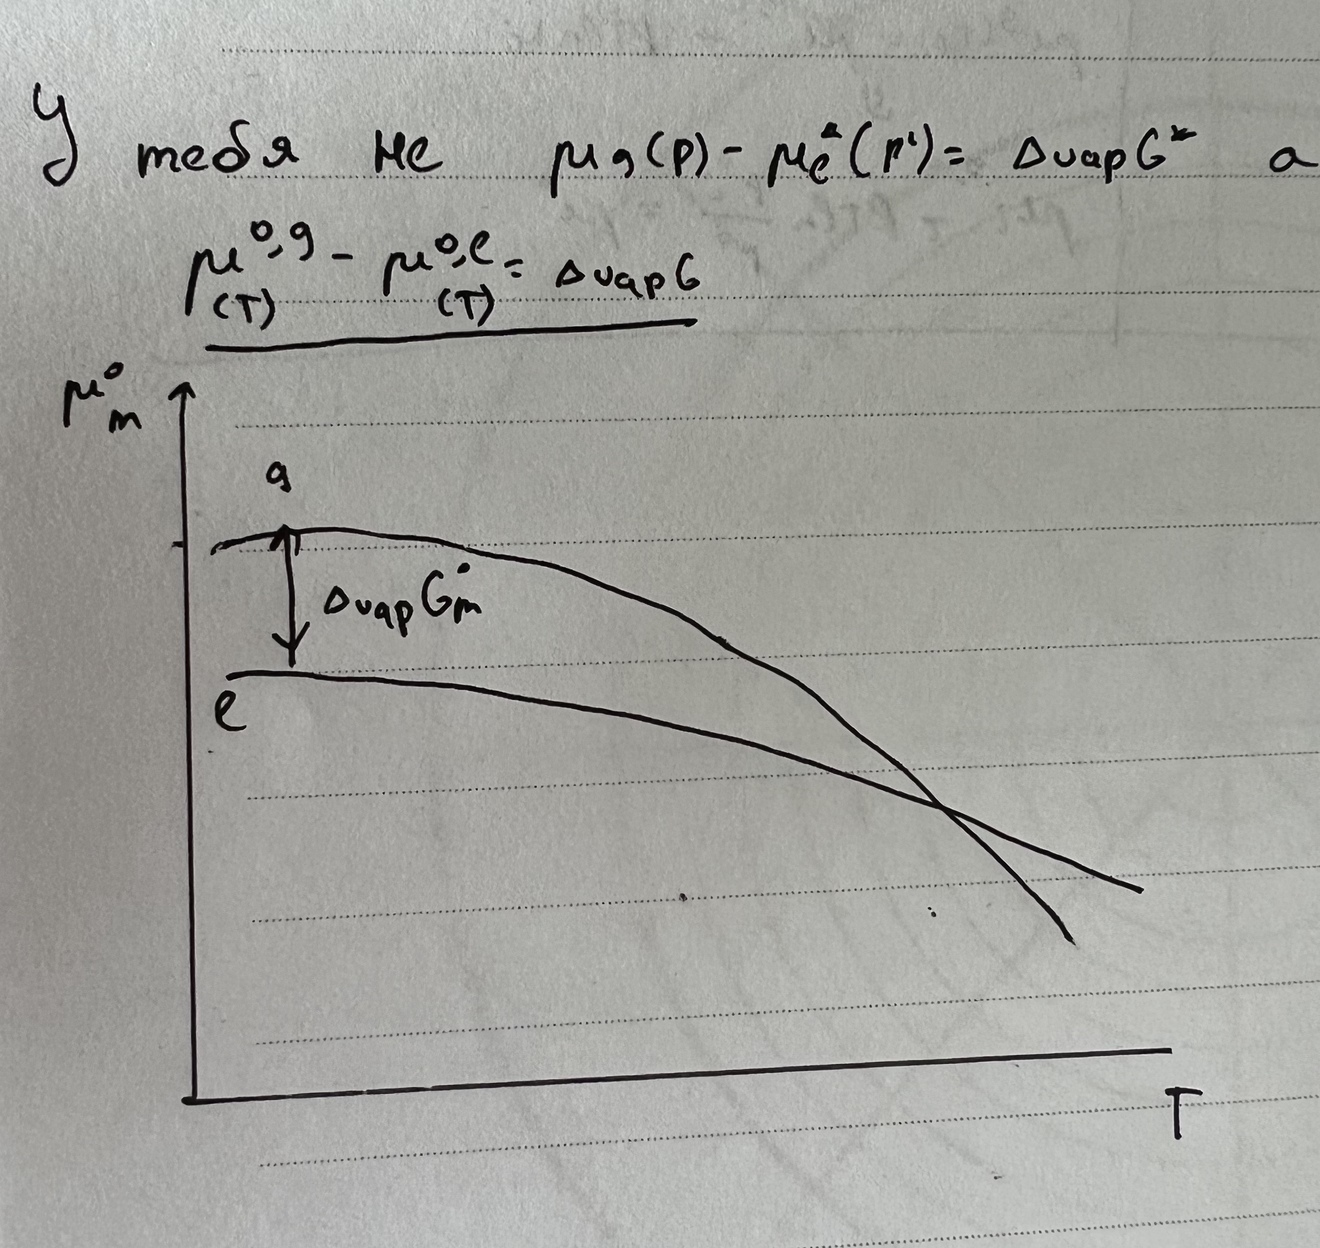 У тебя не μg(p) - μe*(p') = ΔvapG* а
μ⁰,g(T) - μ⁰,e(T) = ΔvapG
μ°m
g
ΔvapG°m
e
T